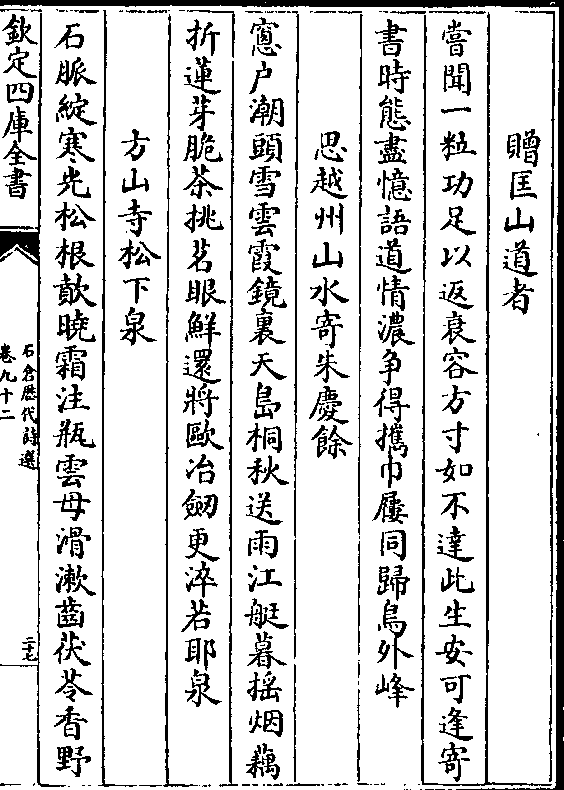 贈匡山道者
嘗聞一粒功足以返衰容方寸如不達此生安可逢寄
書時態盡憶語道情濃争得攜巾屨同歸鳥外峰
思越州山水寄朱慶餘
窻户潮頭雪雲霞鏡裏天島桐秋送雨江艇暮揺烟藕
折蓮芽脆茶挑茗眼鮮還將歐冶劒更淬若耶泉
方山寺松下泉
石脈綻寒光松根歕曉霜注瓶雲母滑漱齒茯苓香野
欽定四庫全書
石倉歴代詩選
卷九十二
二七